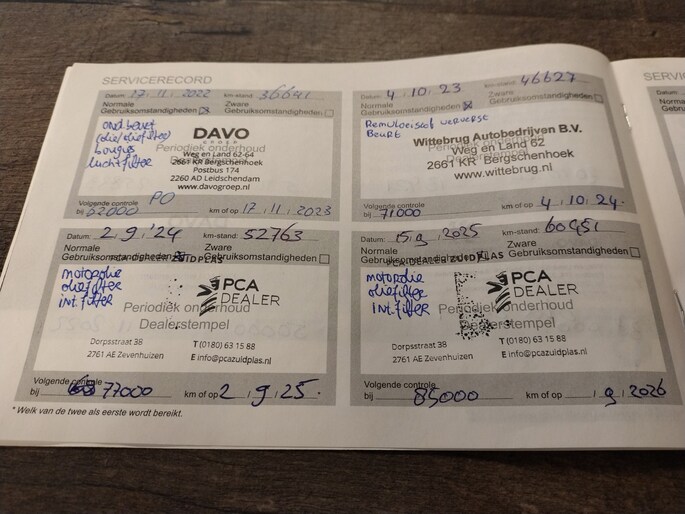 SERVICERECORD
Datum: 17 11 2022 km-stand: 36641
Normale Gebruiksomstandigheden ☒ Zware Gebruiksomstandigheden ☐
olie/oliefilter
bougies
luchtfilter
DAVO
GROEP
Periodiek onderhoud
Weg en Land 62-64
2661 KR Bergschenhoek
Postbus 174
2260 AD Leidschendam
www.davogroep.nl
PO
Volgende controle
bij 62000 km of op 17 / 11 / 2023
Datum: 4 10 23 km-stand: 46627
Normale Gebruiksomstandigheden ☒ Zware Gebruiksomstandigheden ☐
Remvloeistof ververst
Beurt
Wittebrug Autobedrijven B.V.
Periodiek onderhoud
Weg en Land 62
2661 KR Bergschenhoek
www.wittebrug.nl
Volgende controle
bij 71000 km of op 4 / 10 / 24.
Datum: 2 9 '24 km-stand: 52763
Normale Gebruiksomstandigheden ☒ Zware Gebruiksomstandigheden ☐
PCA DEALER ZUIDPLAS
motorolie
oliefilter
int. filter
PCA
DEALER
Periodiek onderhoud
Dealerstempel
Dorpsstraat 38 T (0180) 63 15 88
2761 AE Zevenhuizen E info@pcazuidplas.nl
Volgende controle
bij 77000 km of op 2 / 9 / 25.
Datum: 15 9 2025 km-stand: 60951
Normale Gebruiksomstandigheden ☒ Zware Gebruiksomstandigheden ☐
PCA DEALER ZUIDPLAS
motorolie
oliefilter
int. filter
PCA
DEALER
Periodiek onderhoud
Dealerstempel
Dorpsstraat 38 T (0180) 63 15 88
2761 AE Zevenhuizen E info@pcazuidplas.nl
Volgende controle
bij 85000 km of op / 9 / 2026
* Welk van de twee als eerste wordt bereikt.